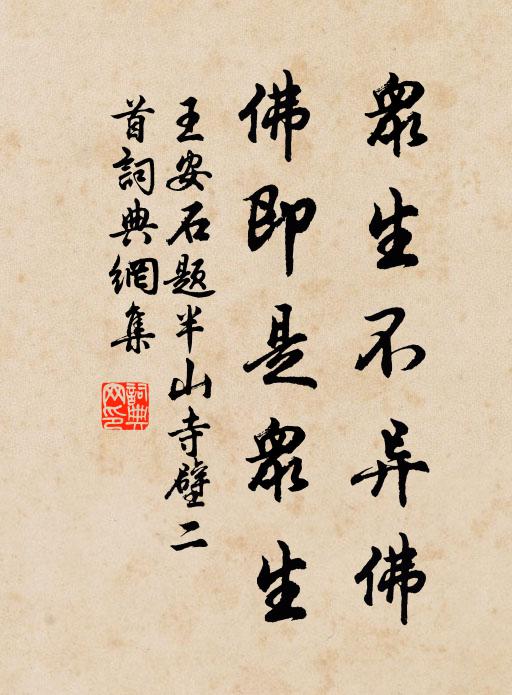 眾生不异佛
佛即是眾生
王安石题半山寺壁二
首詞典網集
詞典
网印